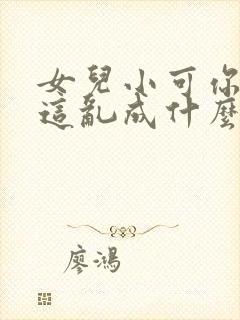 女兒小可你
這亂成什麼
廖鴻